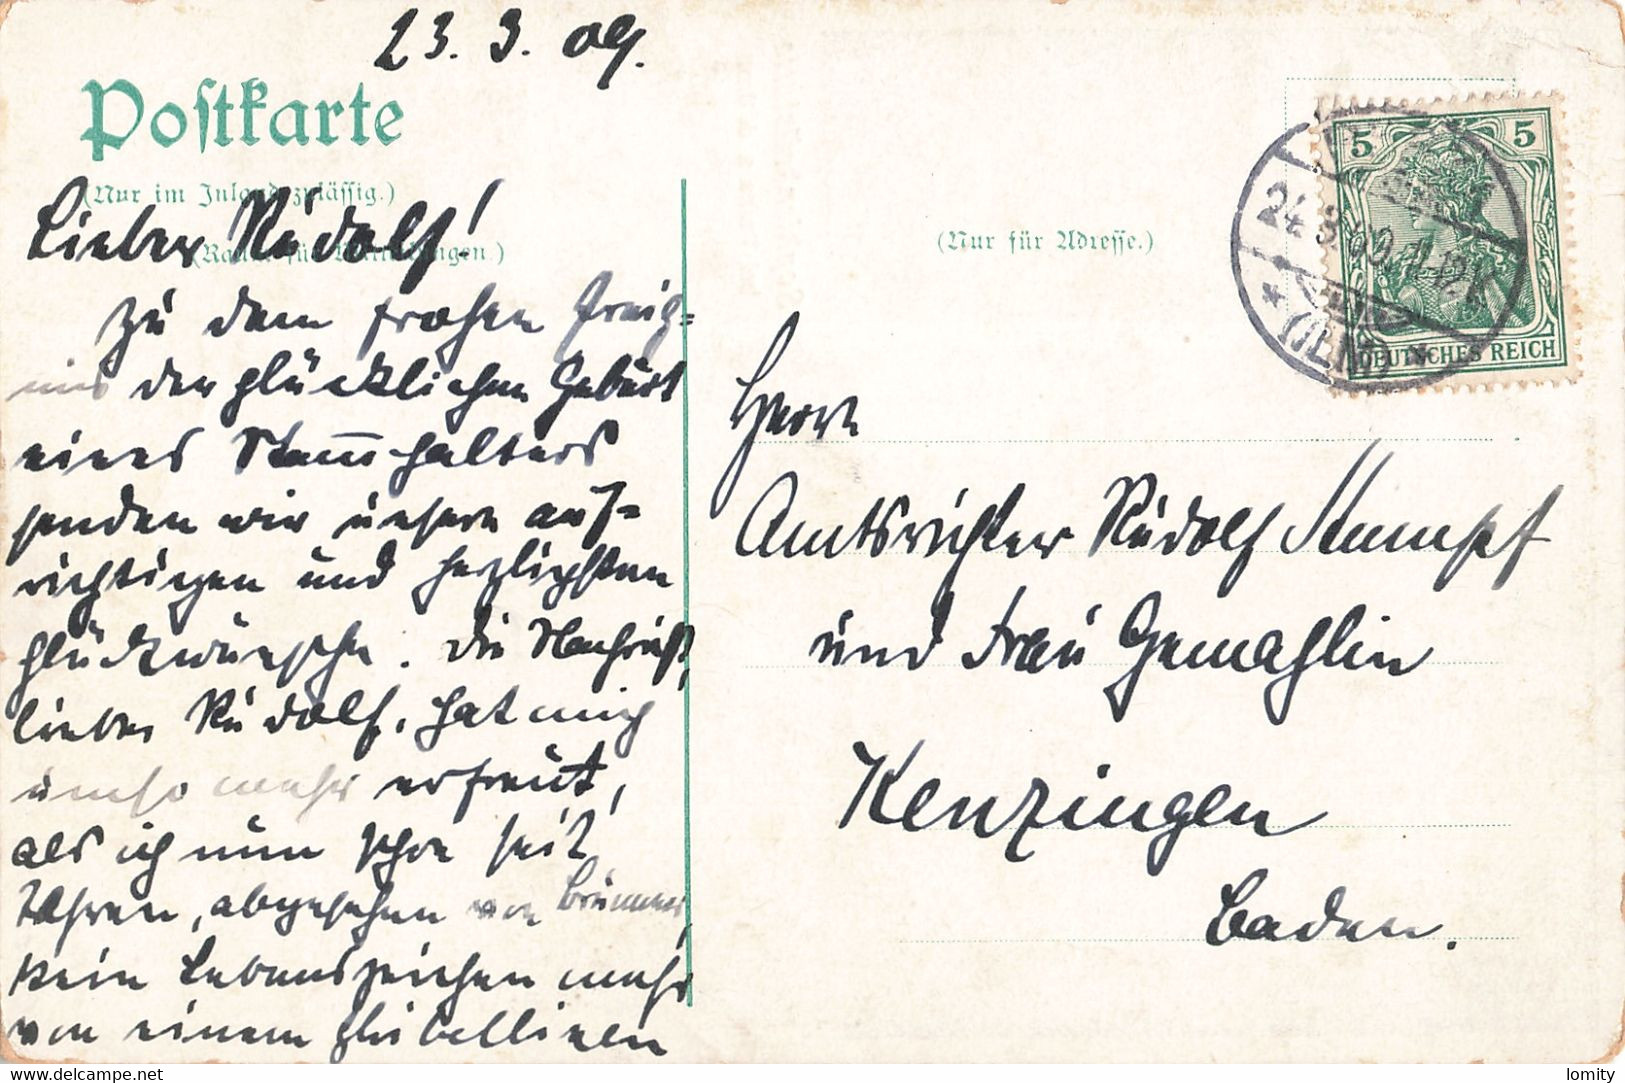 23. 3. 09.
Postkarte
(Nur im Inland zulässig.)
(Raum für Mitteilungen.)
Lieber Rudolf!
Zu dem frohen Ereig-
nis der glücklichen Geburt
eines Stammhalters
senden wir unsere auf-
richtigen und herzlichsten
Glückwünsche. Die Nachricht,
lieber Rudolf, hat mich
umso mehr erfreut,
als ich nun schon seit
Jahren, abgesehen von
kein Lebenszeichen mehr
von einem Ghibellinen
(Nur für Adresse.)
5 5
DEUTSCHES REICH
Herrn
Amtsrichter Rudolf Stumpf
und Frau Gemahlin
Kenzingen
Baden.
Bid Live on delcampe.net
lomity